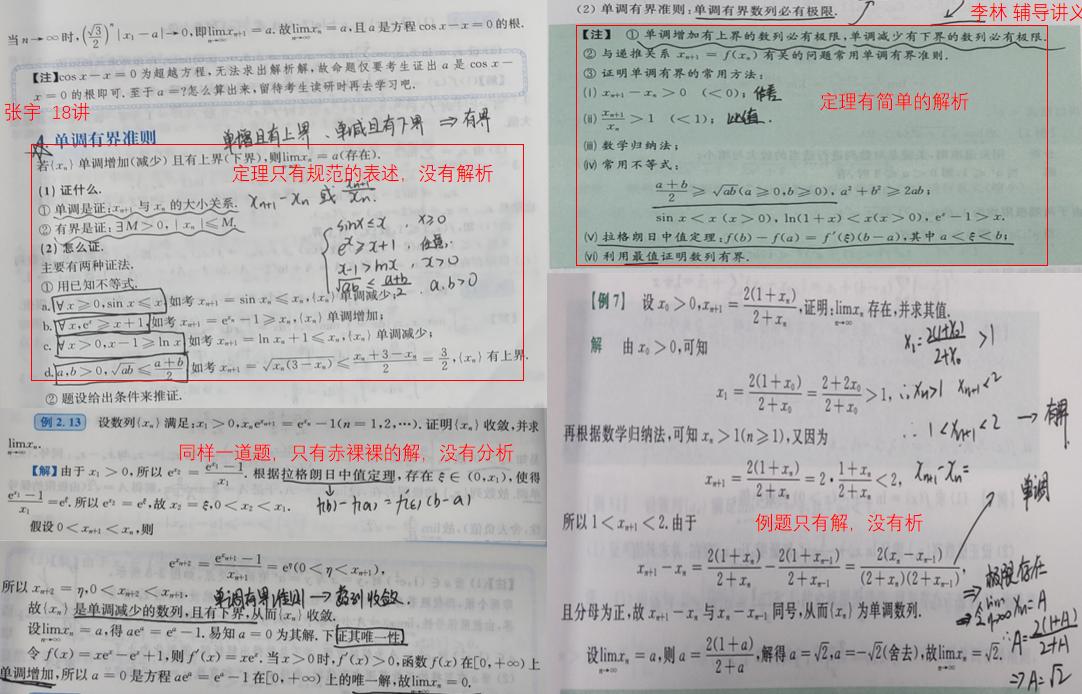 当 n→∞ 时,(√3/2)ⁿ|x₁-a|→0,即lim(n→∞)xₙ₊₁=a.故lim(n→∞)xₙ=a,且a是方程 cos x-x=0的根.
【注】cos x-x=0为超越方程,无法求出解析解,故命题仅要考生证出 a 是 cos x-
x=0的根即可.至于a=?怎么算出来,留待考生读研时再去学习吧.
张宇 18讲
单调有界准则
单增且有上界、单减且有下界 ⇒ 有界
若{xₙ}单调增加(减少)且有上界(下界),则lim(n→∞)xₙ=a(存在).
定理只有规范的表述,没有解析
(1) 证什么.
① 单调是证:xₙ₊₁与xₙ的大小关系.
xₙ₊₁-xₙ 或 xₙ₊₁/xₙ
② 有界是证:∃M>0,|xₙ|≤M.
(2) 怎么证.
主要有两种证法.
① 用已知不等式.
sinx≤x x≥0
eˣ≥x+1, 任意.
x-1≥lnx, x>0
√ab≤(a+b)/2, a.b>0
a. ∀x≥0,sin x≤x,如考xₙ₊₁=sin xₙ≤xₙ,{xₙ}单调减少;
b. ∀x,eˣ≥x+1,如考xₙ₊₁=e^(xₙ)-1≥xₙ,{xₙ}单调增加;
c. ∀x>0,x-1≥ln x,如考xₙ₊₁=ln xₙ+1≤xₙ,{xₙ}单调减少;
d. a,b>0,√ab≤(a+b)/2,如考xₙ₊₁=√(xₙ(3-xₙ))≤(xₙ+3-xₙ)/2=3/2,{xₙ}有上界.
② 题设给出条件来推证.
例 2.13 设数列{xₙ}满足:x₁>0,xₙe^(xₙ₊₁)=e^(xₙ)-1(n=1,2,⋯).证明{xₙ}收敛,并求
lim(n→∞)xₙ.
同样一道题,只有赤裸裸的解,没有分析
【解】由于x₁>0,所以e^(x₂)=(e^(x₁)-1)/x₁.根据拉格朗日中值定理,存在ξ∈(0,x₁),使得
(e^(x₁)-1)/x₁=e^ξ.所以e^(x₂)=e^ξ,故x₂=ξ,0<x₂<x₁.
f(b)-f(a)=f'(ξ)(b-a)
假设0<xₙ₊₁<xₙ,则
e^(xₙ₊₂)=(e^(xₙ₊₁)-1)/xₙ₊₁=e^η(0<η<xₙ₊₁),
所以xₙ₊₂=η,0<xₙ₊₂<xₙ₊₁.
单调有界准则→数列收敛
故{xₙ}是单调减少的数列,且有下界,从而{xₙ}收敛.
设lim(n→∞)xₙ=a,得aeᵃ=eᵃ-1.易知a=0为其解.下证其唯一性.
令f(x)=xeˣ-eˣ+1,则f′(x)=xeˣ.当x>0时,f′(x)>0,函数f(x)在[0,+∞)上
单调增加,所以a=0是方程aeᵃ=eᵃ-1在[0,+∞)上的唯一解,故lim(n→∞)xₙ=0.
(2) 单调有界准则:单调有界数列必有极限.
李林 辅导讲义
【注】 ① 单调增加有上界的数列必有极限,单调减少有下界的数列必有极限.
② 与递推关系xₙ₊₁=f(xₙ)有关的问题常用单调有界准则.
③ 证明单调有界的常用方法:
(ⅰ) xₙ₊₁-xₙ>0 (<0); 作差
定理有简单的解析
(ⅱ) xₙ₊₁/xₙ>1 (<1); 比值.
(ⅲ) 数学归纳法;
(ⅳ) 常用不等式:
(a+b)/2≥√ab(a≥0,b≥0),a²+b²≥2ab;
sin x<x(x>0),ln(1+x)<x(x>0),eˣ-1>x.
(ⅴ) 拉格朗日中值定理:f(b)-f(a)=f′(ξ)(b-a),其中a<ξ<b;
(ⅵ) 利用最值证明数列有界.
【例7】 设x₀>0,xₙ₊₁=2(1+xₙ)/(2+xₙ),证明:lim(n→∞)xₙ存在,并求其值.
解 由x₀>0,可知
x₁=2(1+x₀)/(2+x₀)>1
x₁=2(1+x₀)/(2+x₀)=(2+2x₀)/(2+x₀)>1, ∴xₙ>1 xₙ₊₁<2
再根据数学归纳法,可知xₙ>1(n≥1),又因为
∴1<xₙ₊₁<2 → 有界
xₙ₊₁=2(1+xₙ)/(2+xₙ)=2·(1+xₙ)/(2+xₙ)<2, xₙ₊₁-xₙ=
单调
所以1<xₙ₊₁<2.由于
例题只有解,没有析
xₙ₊₁-xₙ=2(1+xₙ)/(2+xₙ)-2(1+xₙ₋₁)/(2+xₙ₋₁)=2(xₙ-xₙ₋₁)/((2+xₙ)(2+xₙ₋₁)),
⇒极限存在
且分母为正,故xₙ₊₁-xₙ与xₙ-xₙ₋₁同号,从而{xₙ}为单调数列.
⇒令lim(n→∞)xₙ=A
设lim(n→∞)xₙ=a,则a=2(1+a)/(2+a),解得a=√2,a=-√2(舍去),故lim(n→∞)xₙ=√2.
∴A=2(1+A)/(2+A)
⇒A=√2